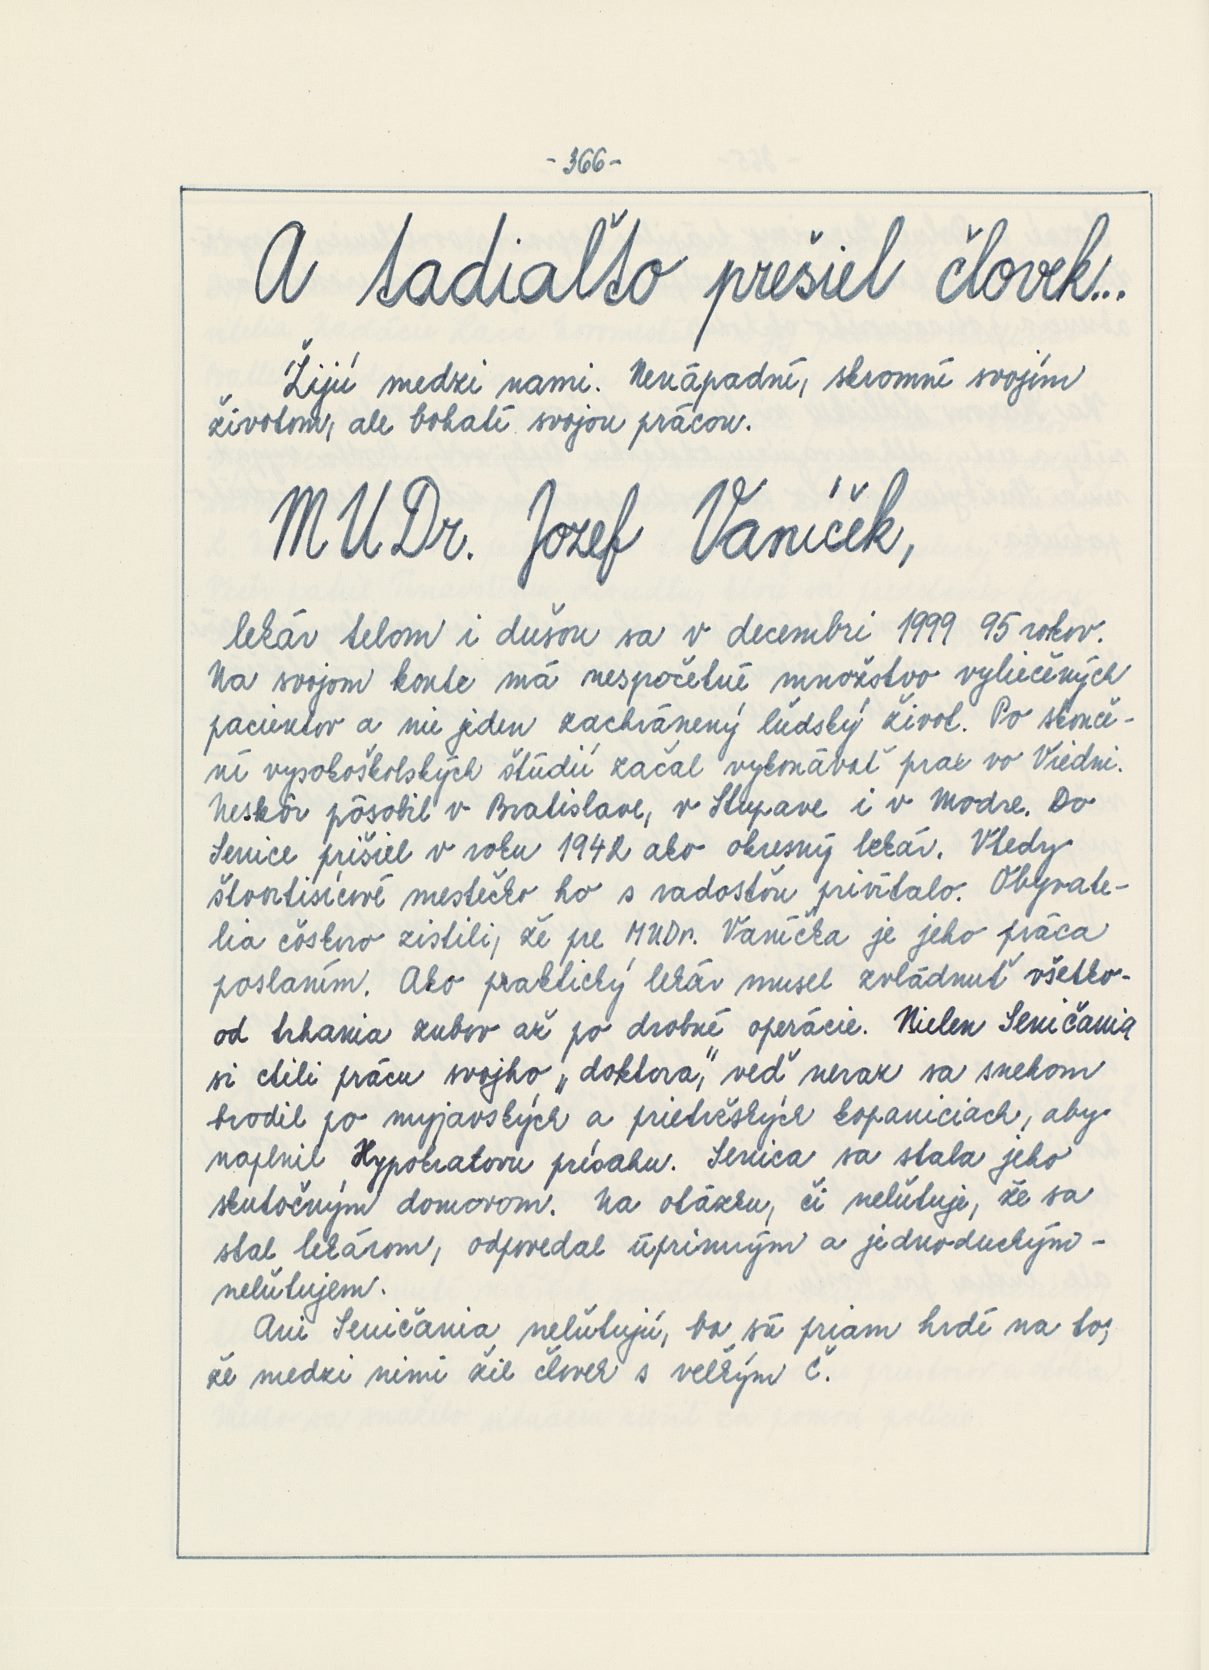 -366-
A tadiaľto prešiel človek...
Žijú medzi nami. Nenápadní, skromní svojím
životom, ale bohatí svojou prácou.
MUDr. Jozef Vaníček,
lekár telom i dušou sa v decembri 1999 95 rokov.
Na svojom konte má nespočetné množstvo vyliečených
pacientov a nie jeden zachránený ľudský život. Po skonče-
ní vysokoškolských štúdií začal vykonávať prax vo Viedni.
Neskôr pôsobil v Bratislave, v Stupave i v Modre. Do
Senice prišiel v roku 1942 ako okresný lekár. Vtedy
štvortisícové mestečko ho s radosťou privítalo. Obyvate-
lia čoskoro zistili, že pre MUDr. Vaníčka je jeho práca
poslaním. Ako praktický lekár musel zvládnuť všetko-
od trhania zubov až po drobné operácie. Nielen Seničania
si ctili prácu svojho „doktora," veď neraz sa snehom
brodil po myjavských a prietržských kopaniciach, aby
naplnil Hypokratovu prísahu. Senica sa stala jeho
skutočným domovom. Na otázku, či neľutuje, že sa
stal lekárom, odpovedal úprimným a jednoduchým -
neľutujem.
Ani Seničania neľutujú, ba sú priam hrdí na to,
že medzi nimi žil človek s veľkým Č.